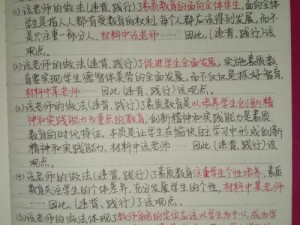 (1)该老师的做法(违背,践行)了素质教育的面向全体学生,面向全体
学生是指人人都有受教育的权利,每个人都应该得到发展,而不
是只注重一部分人,材料中该老师……因此,(违背,践行)该
观点。
(2)该老师的做法(违背,践行)了促进学生全面发展,实施素质教
育要实现学生德智体美劳的全面发展,而不仅仅是抓好智育,
材料中某老师……因此,(违背,践行)该观点。
(3)该老师的做法(违背,践行)了素质教育是以培养学生创新精
神和实践能力为重点的教育,创新精神与实践能力是素质
教育的时代特征,本质是让学生在愉快自主学习中形成创新
精神和实践能力,材料中该老师……因此,(违背,践行)该
观点。
(4)该老师的做法(违背,践行)了素质教育注重学生个性培养,素
质教育关注学生的个体差异,充分发展学生的个性,材料中某老师
……因此,(违背,践行)该观点。
(5)该老师的做法体现了教师角色的定位应该以学生为中心,成为学